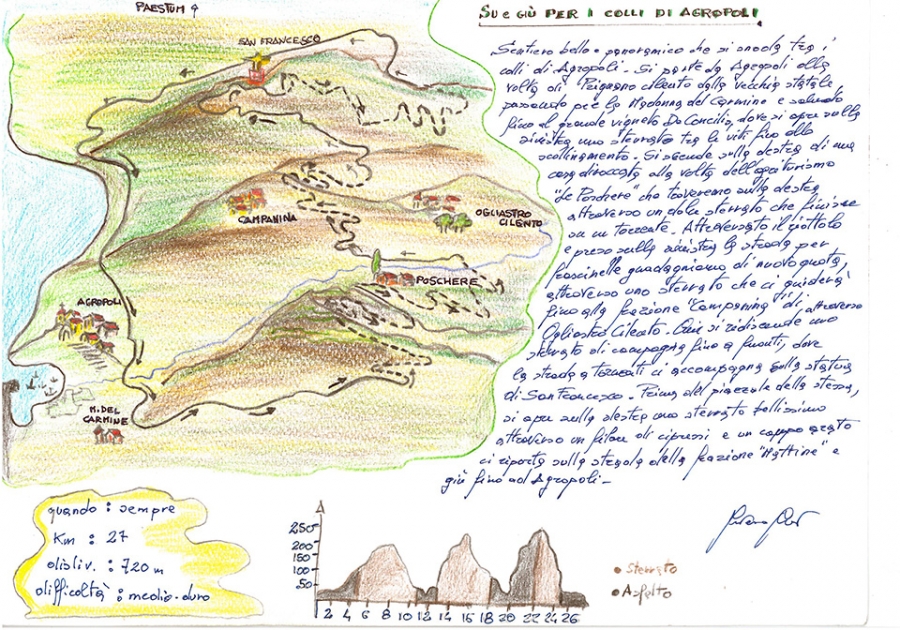 PAESTUM
SU E GIÙ PER I COLLI DI AGROPOLI
SAN FRANCESCO
CAMPANINA
OGLIASTRO CILENTO
POSCHERE
AGROPOLI
M. DEL CARMINE
Sentiero bello e panoramico che si snoda tra i
colli di Agropoli. Si parte da Agropoli alla
volta di Prignano cilento dalla vecchia statale
passando per la Madonna del Carmine e salendo
fino al grande vigneto De Concilis, dove si apre sulla
sinistra uno sterrato tra le viti fino allo
scollinamento. Si scende sulla destra di una
casa diroccata alla volta dell'agriturismo
"Le Poschere" che troveremo sulla destra
attraverso un dolce sterrato che finisce
su un torrente. Attraversato il
e preso sulla sinistra la strada per
guadagniamo di nuovo quota,
attraverso uno sterrato che ci guiderà
fino alla frazione "Campanina" di
Ogliastro Cilento. Qui si ridiscende uno
sterrato di campagna fino a dove
la strada a tornanti ci accompagna sulla statua
di San Francesco. Prima del piazzale della stessa,
si apre sulla destra uno sterrato bellissimo
attraverso un filare di cipressi e un campo arato
ci riporta sulla strada della frazione "Mattine" e
giù fino ad Agropoli.
quando : sempre
Km : 27
disliv. : 720 m
difficoltà : medio-duro
250
200
150
100
50
2 4 6 8 10 12 14 16 18 20 22 24 26
Sterrato
Asfalto